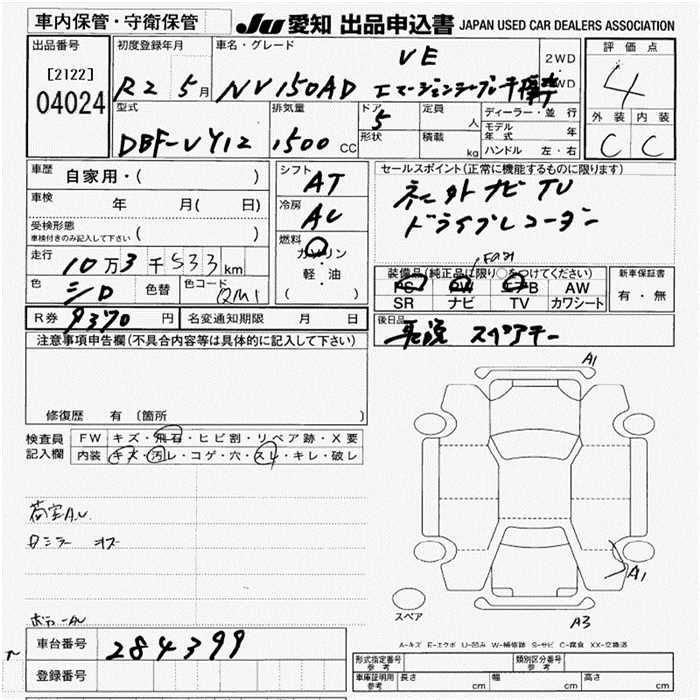 車内保管・守衛保管
JU 愛知 出品申込書 JAPAN USED CAR DEALERS ASSOCIATION
出品番号 初度登録年月 車名・グレード 評価点
[2122] VE 2WD
04024 R2 5月 NV150AD エマージェンシーブレーキ 4WD 4
型式 排気量 ドア 5 定員 人 ディーラー・並行 外装 内装
DBF-VY12 1500 CC 形状 積載 kg モデル年式 年 C C
ハンドル 左・右
車歴 自家用・( ) シフト AT セールスポイント(正常に機能するものに限ります)
車検 年 月( 日) 冷房 AC 社外ナビ TV
受検形態 ( ) ドライブレコーダー
車検付きのみ記入して下さい
燃料 ガソリン
走行 10万3千533km 軽・油 装備品(純正品に限り○をつけてください) 新車保証書
色 シロ 色替 色コード QM1 ( ) PS PW エアB AW 有・無
SR ナビ TV カワシート
R券 9370円 名変通知期限 月 日 後日品
取説 スペアキー
注意事項申告欄(不具合内容等は具体的に記入して下さい)
A1
修復歴 有 〔箇所 〕
検査員 FW キズ・飛石・ヒビ割・リペア跡・X要
記入欄 内装 キズ・汚レ・コゲ・穴・スレ・キレ・破レ
荷室AU
A1
スペア A3
A-キズ E-エクボ U-凹み W-補修跡 S-サビ C-腐食 XX-交換済
車台番号 284399
形式指定番号 参考 類別区分番号 参考
登録番号 車庫証明用 参考 長さ cm 幅 cm 高さ cm